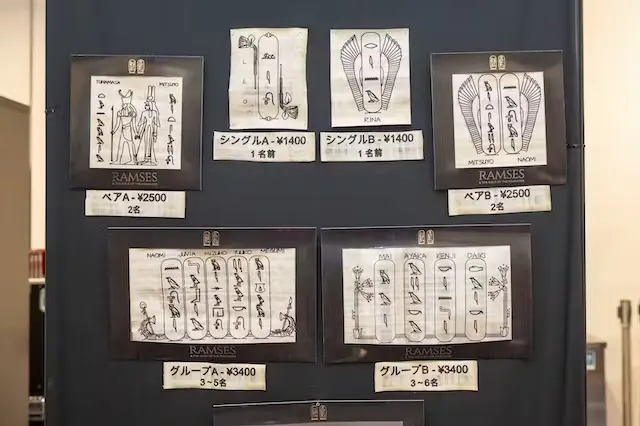 YUKAMASA MITSUYO
RAMSES
& THE GOLD OF THE PHARAOHS
ペアA - ¥2500
2名
LEO
シングルA - ¥1400
1名前
RINA
シングルB - ¥1400
1名前
MITSUYO NAOMI
RAMSES
& THE GOLD OF THE PHARAOHS
ペアB - ¥2500
2名
NAOMI JUVIA MIZUHO YUUKO MEGUMI
RAMSES
グループA - ¥3400
3~5名
MAI AYAKA KENJI DAIKI
RAMSES
グループB - ¥3400
3~6名